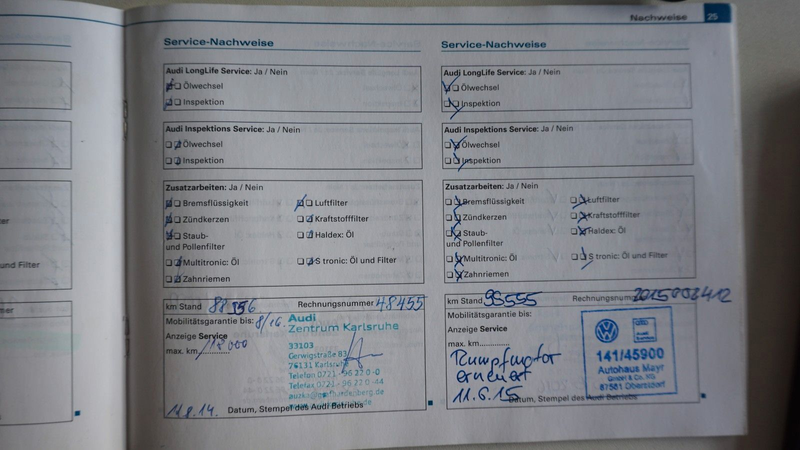 Nachweise 25
Service-Nachweise
Audi LongLife Service: Ja / Nein
Ölwechsel
Inspektion
Audi Inspektions Service: Ja / Nein
Ölwechsel
Inspektion
Zusatzarbeiten: Ja / Nein
Bremsflüssigkeit Luftfilter
Zündkerzen Kraftstofffilter
Staub- Haldex: Öl
und Pollenfilter
Multitronic: Öl S tronic: Öl und Filter
Zahnriemen
km Stand 88156 Rechnungsnummer 48455
Mobilitätsgarantie bis: 8/16.
Anzeige Service
max. km
Audi
Zentrum Karlsruhe
33103
Gerwigstraße 83
76131 Karlsruhe
Telefon 0721 - 96 22 0 -0
Telefax 0721 - 96 22 0 -44
11.8.14. Datum, Stempel des Audi Betriebs
Service-Nachweise
Audi LongLife Service: Ja / Nein
Ölwechsel
Inspektion
Audi Inspektions Service: Ja / Nein
Ölwechsel
Inspektion
Zusatzarbeiten: Ja / Nein
Bremsflüssigkeit Luftfilter
Zündkerzen Kraftstofffilter
Staub- Haldex: Öl
und Pollenfilter
Multitronic: Öl S tronic: Öl und Filter
Zahnriemen
km Stand 99555
Mobilitätsgarantie bis:
Anzeige Service
max. km
erneuert
11.6.15
141/45900
Autohaus Mayr
GmbH & Co. KG
87561 Oberstdorf
Datum, Stempel des Audi Betriebs
und Filter